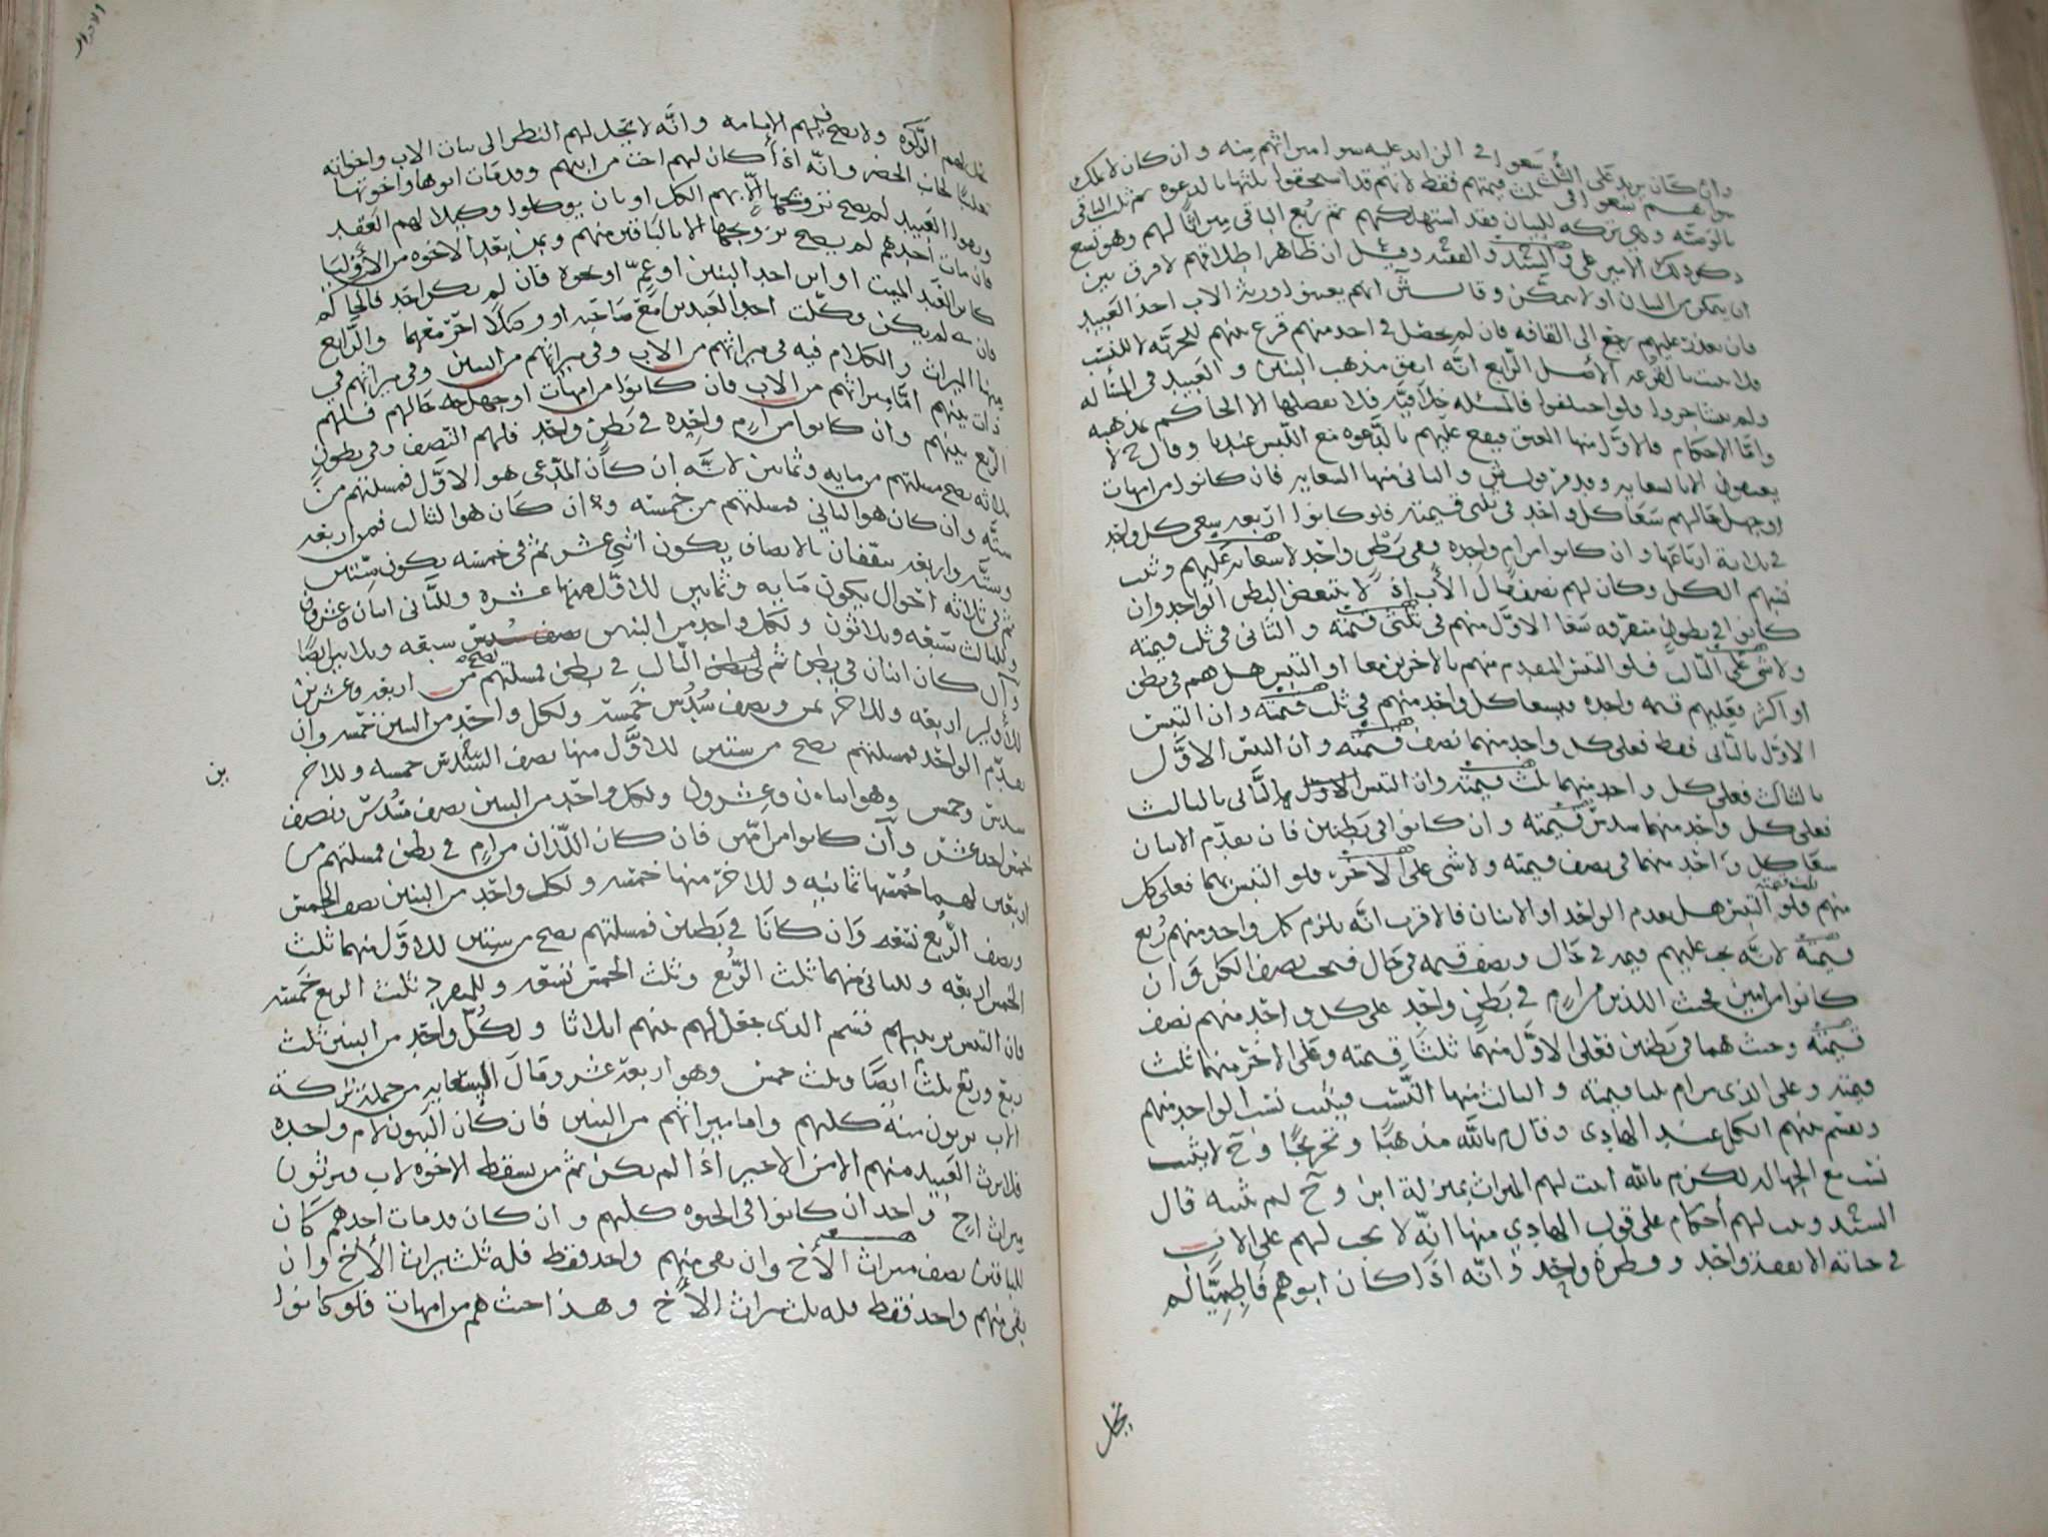 وان كان يزيد على الثلث سعوا في الزايد عليه سوا ميراثهم منه وان كان لا يملك
سواهم سعوا في ثلث قيمتهم فقط لانهم قد استحقوا ثلثها بالدعوه ثم ثلث الباقي
بالوصيه وهي تركه للبيان فقد استهلكهم ثم ربع الباقي ميراثا لهم وهو تسع
ذكر ذلك الامير علي والسيد والفقيه وقيل ان ظاهر اطلاقهم لا فرق بين
ان يتمكن من البيان او لا يتمكن وقال ش انهم يعينوا ورثة الاب احد العبيد
فان تعذر عليهم رجع الى القافه فان لم يحصل في احد منهم قرع بينهم للحريه لا للنسب
فلا يثبت بالقرعه الاصل الرابع انه اتفق مذهب البنين والعبيد في المسأله
ولم يتشاجروا فلو اختلفوا فالمسئله خلافيه فلا يفصلها الا الحاكم بمذهبه
واما الاحكام فالاول منها العتق فيقع عليهم بالدعوه مع اللبس عندنا وقال ح لا
يعتقون الا بالسعايه والثاني منها السعايه فان كانوا من امهات
او جهل حالهم سعا كل واحد في ثلثي قيمته فلو كانوا اربعه سعى كل واحد
في ثلاثة ارباعها وان كانوا من ام واحده وفي بطن واحد لا سعايه عليهم وثبت
نسبهم الكل وكان لهم نصف مال الاب اذ لا يتبعض البطن الواحد وان
كانوا في بطون متفرقه سعا الاول منهم في ثلثي قيمته والثاني في ثلث قيمته
ولا شي على الثالث فلو التبس المتقدم منهم بالاخرين معا او التبس هل هم في بطن
او اكثر فعليهم قيمه واحده فيسعا كل واحد منهم في ثلث قيمته وان التبس
الاول بالثاني فقط فعلى كل واحد منهما نصف قيمته وان التبس الاول
بالثالث فعلى كل واحد منهما ثلث قيمته وان التبس الثاني بالثالث
فعلى كل واحد منهما سدس قيمته وان كانوا في بطنين فان تقدم الاثنان
سعا كل واحد منهما في نصف قيمته ولا شي على الاخر فلو التبس بهما فعلى كل
منهم ثلث قيمته فلو التبس هل تقدم الواحد او الاثنان فالاقرب انه يلزم كل واحد منهم ربع
قيمته لانه يجب عليهم قيمه في حال ونصف قيمه في حال فيجب نصف الكل وان
كانوا من امين فحيث اللذين من ام في بطن واحد على كل واحد منهم نصف
قيمته وحيث هما في بطنين فعلى الاول منهما ثلثا قيمته وعلى الاخر منهما ثلث
قيمته وعلى الذي من ام ثلثا قيمته والثالث منها النسب فيثبت نسب الواحد منهم
ويقسم بينهم الكل عند الهادي وقال م بالله مذهبًا وتخريجًا وح لا يثبت
نسب مع الجهاله لكن م بالله اثبت لهم الميراث بمنزلة ابن وح لم يثبته قال
السيد ويثبت لهم أحكام على قول الهادي منها انه لا يجب لهم على الاب
في حياته الا نفقة واحد وفطرة واحد وانه اذا كان ابوهم فاطميًا لم
تحل
تحل لهم الزكوة ولا يصح فيهم الامامه وانه لا يحل لهم النظر الى بنات الاب واخواته
تغليبًا لجانب الحضر وانه اذا كان لهم اخت من ابيهم وقد مات ابوها واخوتها
وبقوا العبيد لم يصح تزويجها الا بهم الكل او بان يوكلوا وكيلا لهم العقد
فان مات احدهم لم يصح تزويجها الا بالباقين منهم وبمن بعد الاخوه من الأوليا
كابن العبد الميت او ابن احد البنين او عمّ او نحوه فان لم يكن احد فالحاكم
فان لم يكن وكلت احد العبدين مع صاحبه او وكلا اخر معهما والرابع
منها الميراث والكلام فيه في ميراثهم من الاب وفي ميراثهم من البنين وفي ميراثهم في
ذات بينهم اما ميراثهم من الاب فان كانوا من امهات او جهل حالهم فلهم
الربع بينهم وان كانوا من ام واحده في بطن واحد فلهم النصف وفي بطون
ثلاثه تصح مسلتهم من مايه وثمانين لانه ان كان المدعى هو الاول فمسلتهم من
سته وان كان هو الثاني فمسلتهم من خمسه وان كان هو الثالث فمن اربعه
وسته واربعه متفقان بالانصاف يكون اثني عشر ثم في خمسه يكون ستين
ثم في ثلاثه احوال يكون مايه وثمانين للاول منها عشره وللثاني اثنان وعشرون
وللثالث سبعه وثلاثون ولكل واحد من البنين سبعه وثلاثين ايضًا
وان كان اثنان في بطن ثم الثالث في بطن فمسلتهم تصح من اربعه وعشرين
للاولين اربعه وللاخر ثمن ونصف سدس خمسه ولكل واحد من البنين خمسه وان
تقدم الواحد فمسلتهم تصح من ستين للاول منها نصف السدس خمسه وللاخرين
سدس وخمس وهو اثنان وعشرون ولكل واحد من البنين نصف سدس ونصف
خمس احد عشر وان كانوا من امين فان كان اللذان من ام في بطن فمسلتهم من
اربعين لهما خمسها ثمانيه وللاخر منها خمسه ولكل واحد من البنين نصف الخمس
ونصف الربع تسعه وان كانا في بطنين فمسلتهم تصح من ستين للاول منهما ثلث
الخمس اربعه وللثاني منهما ثلث الربع وثلث الخمس تسعه وللمنفرد ثلث الربع خمسه
فان التبس ترتيبهم قسم الذي جعل لهم بينهم اثلاثا ولكل واحد من البنين ثلث
ربع وربع ثلث ايضًا وثلث خمس وهو اربعة عشر وقال السعايه من جملة تركة
الاب يرثون منه كلهم واما ميراثهم من البنين فان كان البنون لام واحده
فلا يرث العبيد منهم الا من الاخير اذا لم يكن ثم من يسقط الاخوه لاب فيرثون
ميراث اخ واحد ان كانوا في الحيوه كلهم وان كان قد مات احدهم كان
للباقين نصف ميراث الأخ وان بقي منهم واحد فقط فله ثلث ميراث الأخ وان
بقي منهم واحد فقط فله ثلث ميراث الأخ وهذا حيث هم من امهات فلو كانوا
بن